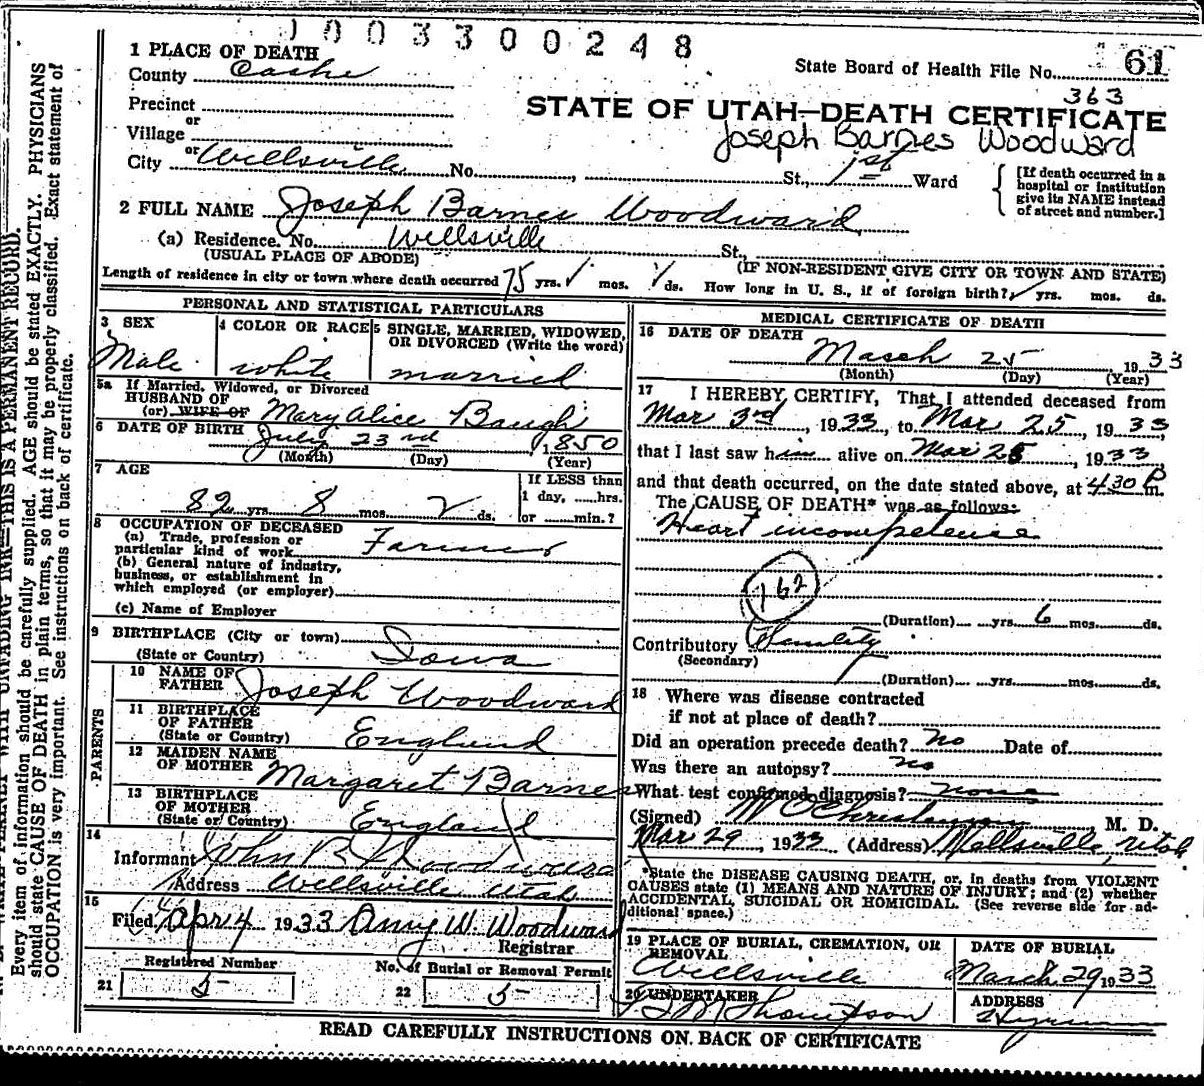 1003300248
1 PLACE OF DEATH
County Cache
State Board of Health File No. 61
363
Precinct
or
Village
STATE OF UTAH—DEATH CERTIFICATE
Joseph Barnes Woodward
or
City Wellsville No. , St., 1st Ward
[If death occurred in a hospital or institution give its NAME instead of street and number.]
2 FULL NAME Joseph Barnes Woodward
(a) Residence. No. Wellsville St.,
(USUAL PLACE OF ABODE)
(IF NON-RESIDENT GIVE CITY OR TOWN AND STATE)
Length of residence in city or town where death occurred 75 yrs. mos. ds. How long in U. S., if of foreign birth? yrs. mos. ds.
PERSONAL AND STATISTICAL PARTICULARS
3 SEX
Male
4 COLOR OR RACE
white
5 SINGLE, MARRIED, WIDOWED,
OR DIVORCED (Write the word)
married
5a If Married, Widowed, or Divorced
HUSBAND OF
(or) WIFE OF Mary Alice Baugh
6 DATE OF BIRTH July 23rd 1850
(Month) (Day) (Year)
7 AGE
82 yrs. 8 mos. 2 ds.
If LESS than
1 day, hrs.
or min.?
8 OCCUPATION OF DECEASED
(a) Trade, profession or
particular kind of work Farmer
(b) General nature of industry,
business, or establishment in
which employed (or employer)
(c) Name of Employer
9 BIRTHPLACE (City or town)
(State or Country) Iowa
PARENTS
10 NAME OF
FATHER Joseph Woodward
11 BIRTHPLACE
OF FATHER
(State or Country) England
12 MAIDEN NAME
OF MOTHER Margaret Barnes
13 BIRTHPLACE
OF MOTHER
(State or Country) England
14
Informant John B. Woodward
Address Wellsville Utah
15
Filed Apr 4 1933 Amy W. Woodward
Registrar
Registered Number
21 5
No. of Burial or Removal Permit
22 5
MEDICAL CERTIFICATE OF DEATH
16 DATE OF DEATH
March 25 1933
(Month) (Day) (Year)
17 I HEREBY CERTIFY, That I attended deceased from
Mar 3rd, 1933, to Mar 25, 1933,
that I last saw him alive on Mar 25, 1933
and that death occurred, on the date stated above, at 4.30 P m.
The CAUSE OF DEATH* was as follows:
Heart incompetence
162
(Duration) yrs. 6 mos. ds.
Contributory Senility
(Secondary)
(Duration) yrs. mos. ds.
18 Where was disease contracted
if not at place of death?
Did an operation precede death? no Date of
Was there an autopsy? no
What test confirmed diagnosis? none
(Signed) M. D.
Mar 29, 1933 (Address) Wellsville, Utah
*State the DISEASE CAUSING DEATH, or, in deaths from VIOLENT
CAUSES state (1) MEANS AND NATURE OF INJURY; and (2) whether
ACCIDENTAL, SUICIDAL OR HOMICIDAL. (See reverse side for ad-
ditional space.)
19 PLACE OF BURIAL, CREMATION, OR
REMOVAL
Wellsville
DATE OF BURIAL
March 29 1933
20 UNDERTAKER
Thompson
ADDRESS
Hyrum
READ CAREFULLY INSTRUCTIONS ON BACK OF CERTIFICATE
WITH UNFADING INK—THIS IS A PERMANENT RECORD.
Every item of information should be carefully supplied. AGE should be stated EXACTLY. PHYSICIANS
should state CAUSE OF DEATH in plain terms, so that it may be properly classified. Exact statement of
OCCUPATION is very important. See instructions on back of certificate.